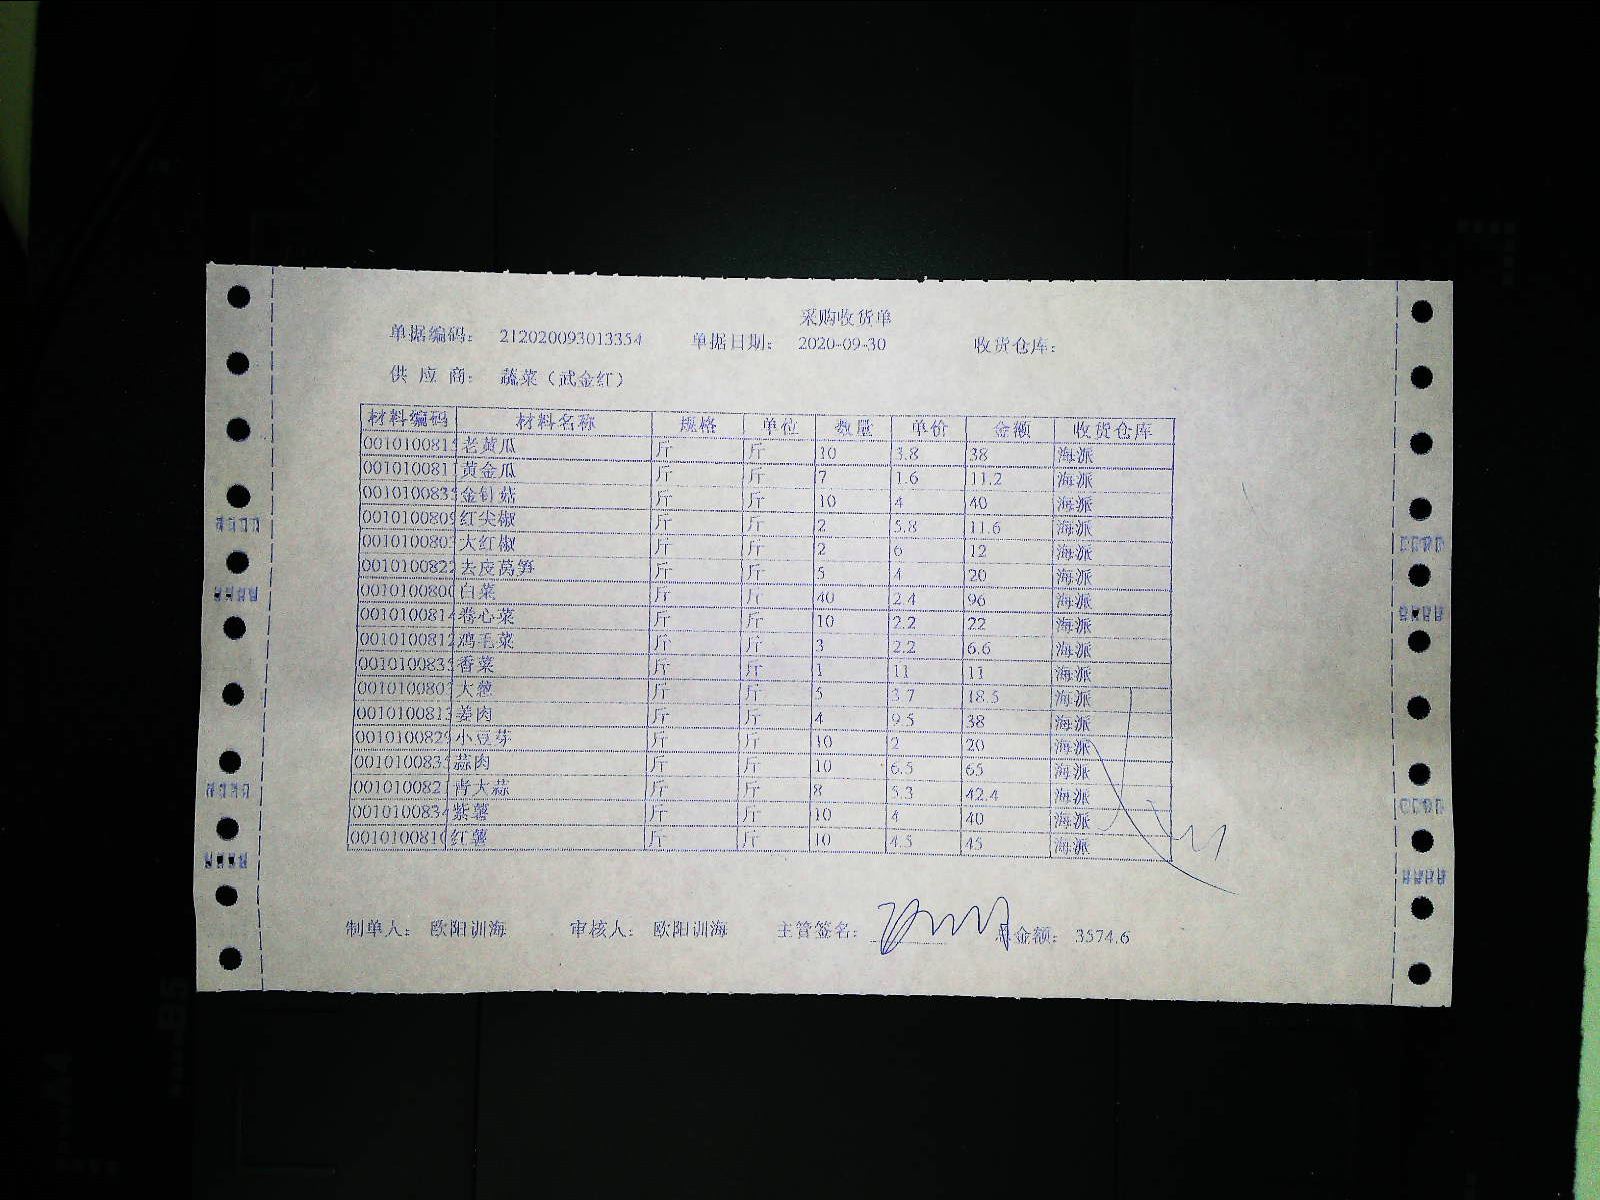 采购收货单
单据编码： 212020093013354 单据日期： 2020-09-30 收货仓库：
供 应 商： 蔬菜（武金红）
材料编码 材料名称 规格 单位 数量 单价 金额 收货仓库
001010081 老黄瓜 斤 斤 10 3.8 38 海派
001010081 黄金瓜 斤 斤 7 1.6 11.2 海派
001010083 金针菇 斤 斤 10 4 40 海派
001010080 红尖椒 斤 斤 2 5.8 11.6 海派
001010080 大红椒 斤 斤 2 6 12 海派
001010082 去皮莴笋 斤 斤 5 4 20 海派
001010080 白菜 斤 斤 40 2.4 96 海派
001010081 卷心菜 斤 斤 10 2.2 22 海派
001010081 鸡毛菜 斤 斤 3 2.2 6.6 海派
001010083 香菜 斤 斤 1 11 11 海派
001010080 大葱 斤 斤 5 3.7 18.5 海派
001010081 姜肉 斤 斤 4 9.5 38 海派
001010082 小豆芽 斤 斤 10 2 20 海派
001010083 蒜肉 斤 斤 10 6.5 65 海派
001010082 青大蒜 斤 斤 8 5.3 42.4 海派
001010083 紫薯 斤 斤 10 4 40 海派
001010081 红薯 斤 斤 10 4.5 45 海派
制单人： 欧阳训海 审核人： 欧阳训海 主管签名： 总金额： 3574.6